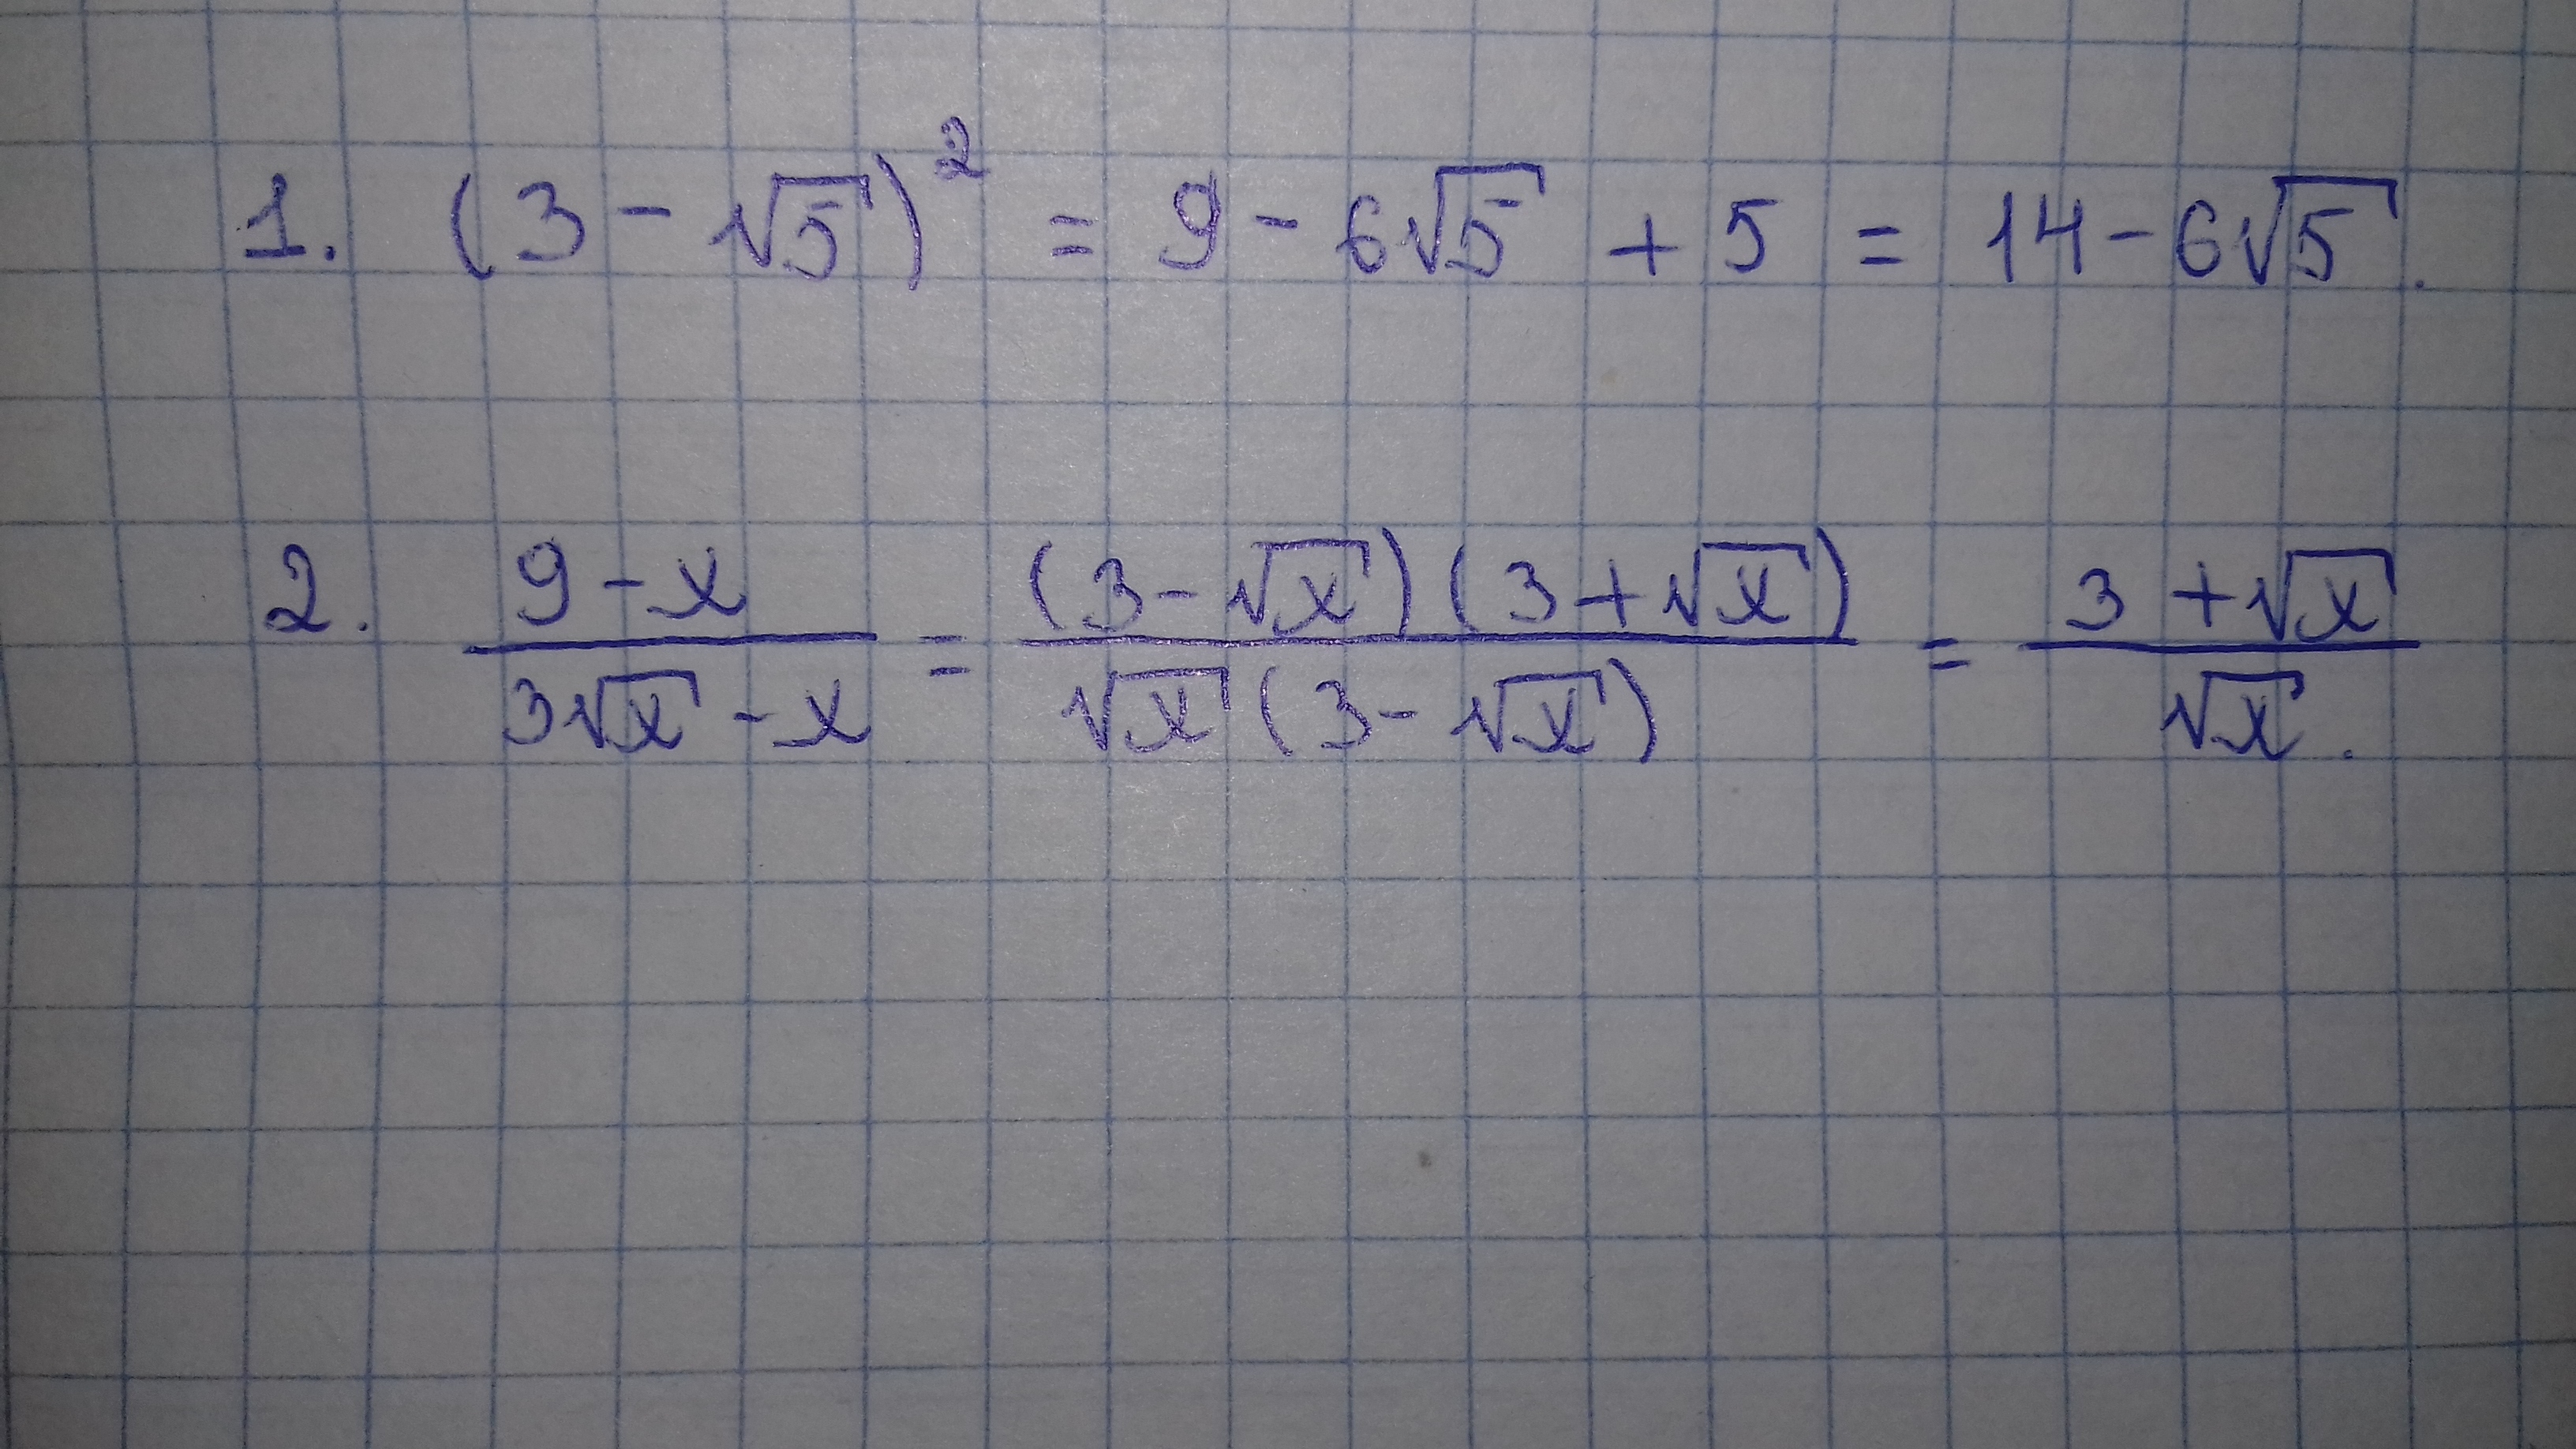 1. (3 - √5)² = 9 - 6√5 + 5 = 14 - 6√5.
2. (9 - x)/(3√x - x) = ((3 - √x)(3 + √x))/(√x(3 - √x)) = (3 + √x)/√x.